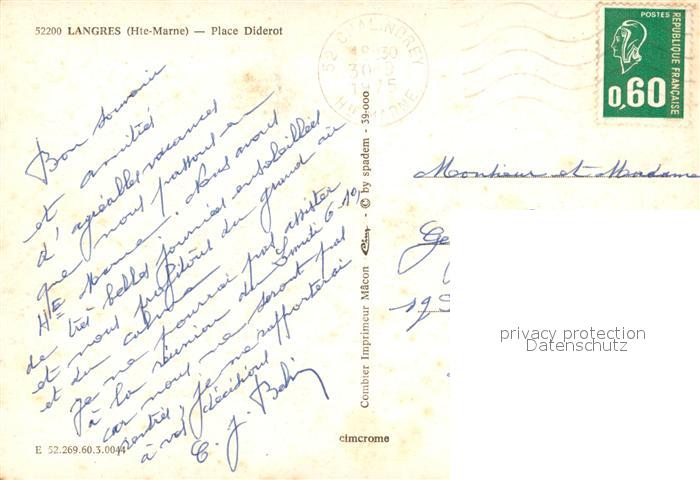 52200 LANGRES (Hte-Marne) — Place Diderot
52 CHALINDREY
18 30
30-9
1975
Hte MARNE
POSTES
REPUBLIQUE FRANÇAISE
0,60
Bon souvenir
et amitiés
d'agréables vacances
que nous passons en
Hte Marne. Nous avons
de très belles journées ensoleillées
et nous profitons du grand air
et du calme.
Je ne pourrai pas assister
à la réunion du lundi 6-10,
car nous ne serons pas
rentrés, je me rapporterai
à vos décisions
Monsieur et Madame
Combier Imprimeur Mâcon Cim - © by spadem - 39-000
E 52.269.60.3.0044
cimcrome
privacy protection
Datenschutz